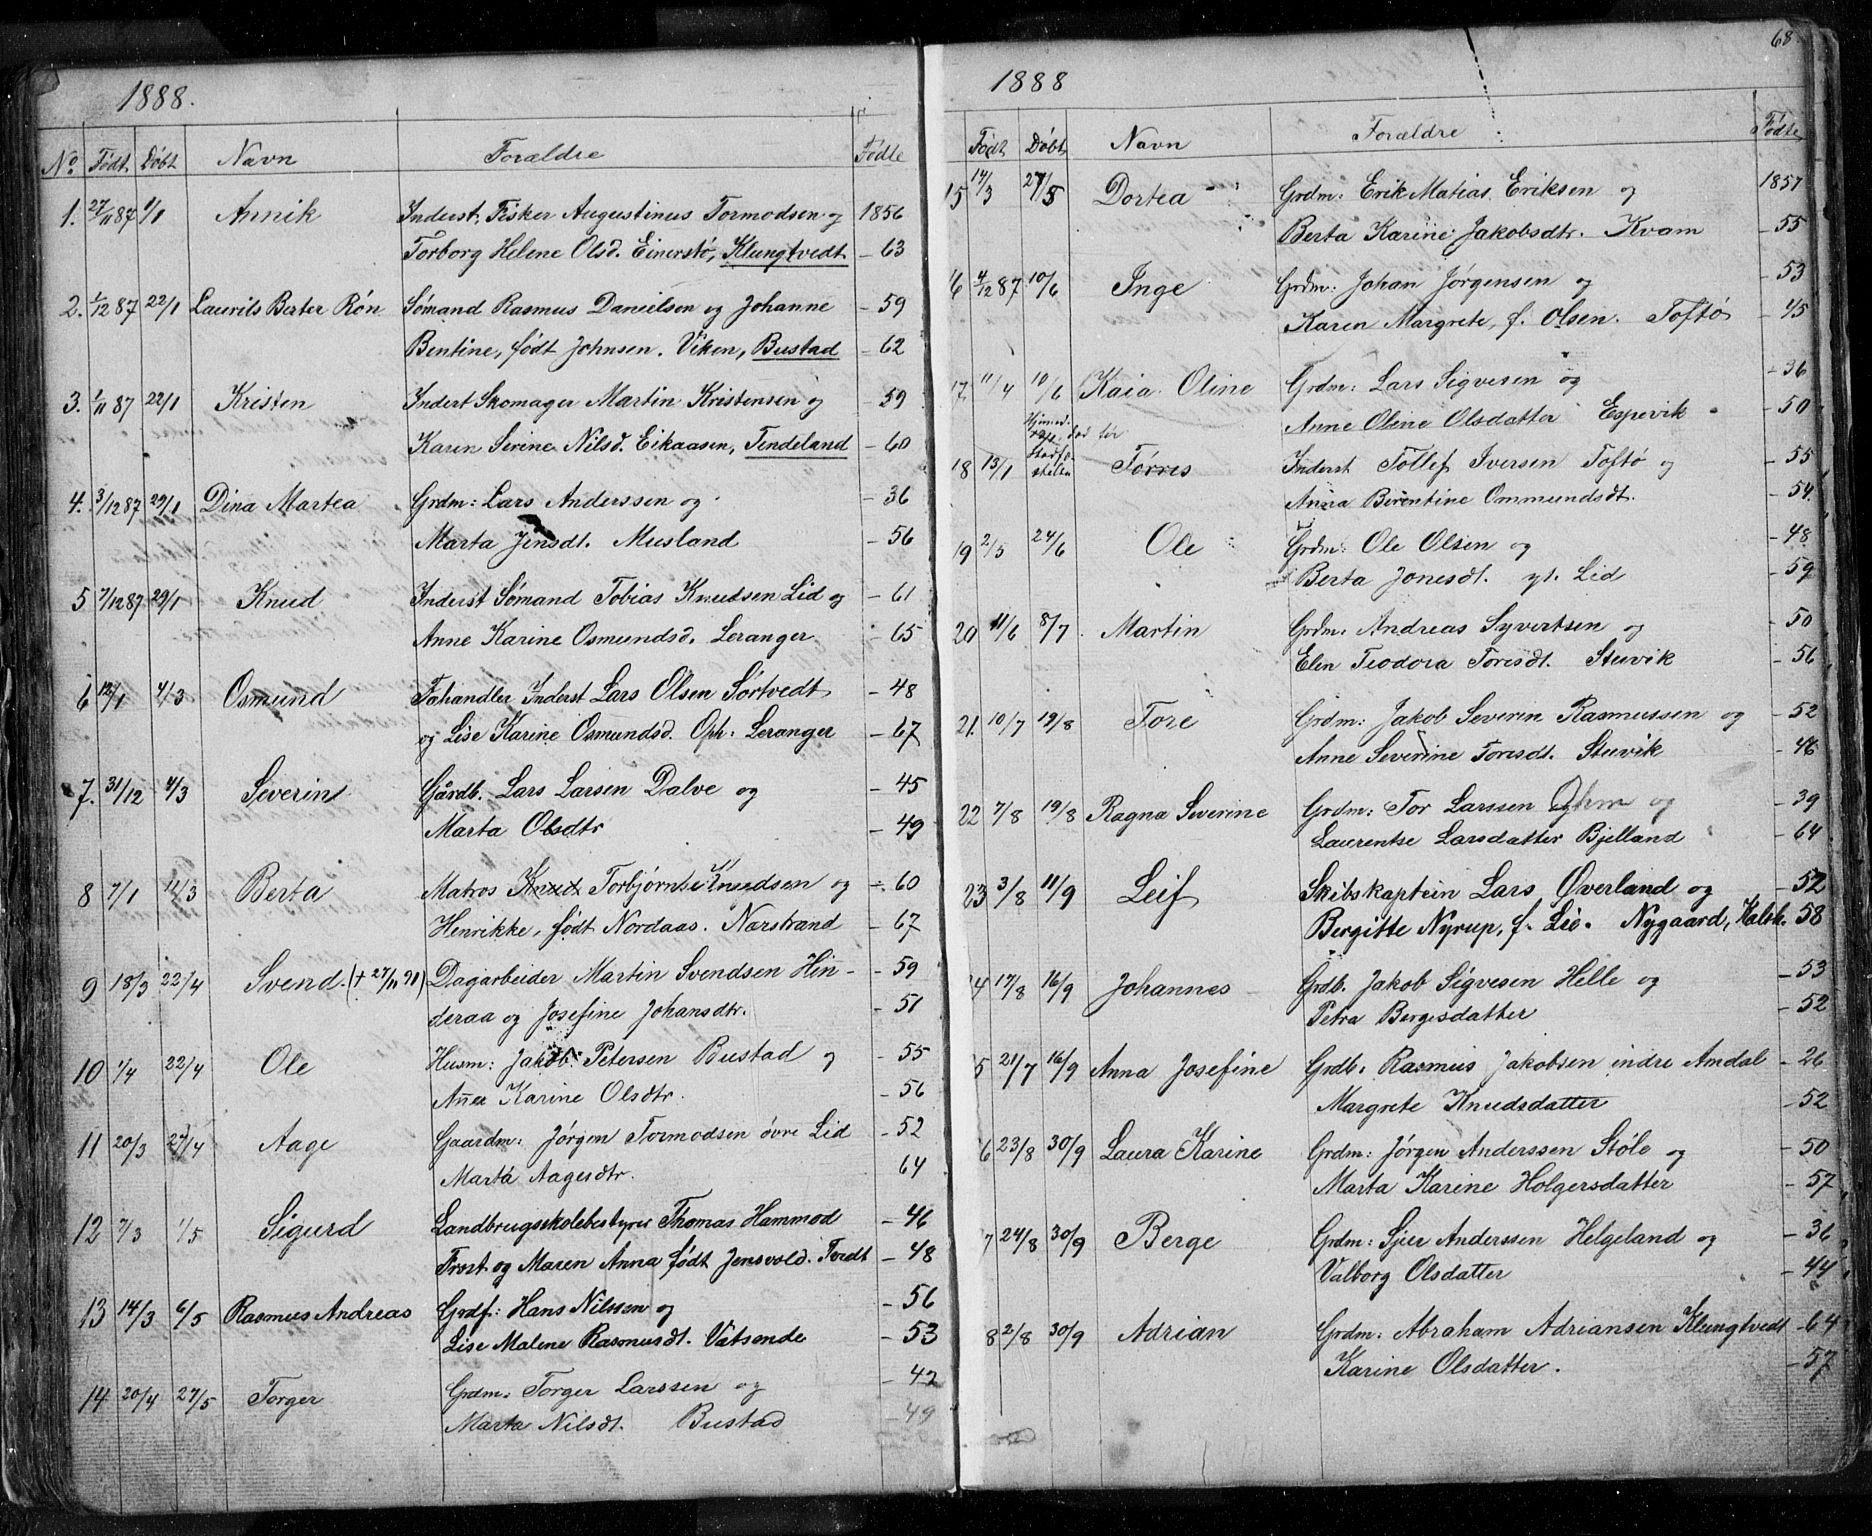 1888.
No. Født Døbt Navn Forældre Fødte
1. 27/11 87 1/1 Annik Inderst, Fisker Augustinus Tormodsen og 1856
Torborg Helene Olsd. Einerstø, Klungtvedt – 63
2. 1/12 87 22/1 Laurits Berter Røn Sømand Rasmus Danielsen og Johanne – 59
Bentine, født Johnsen. Viken, Bustad – 62
3. 1/11 87 22/1 Kristen Inderst Skomager Martin Kristensen og – 59
Karen Serine Nilsd. Eikaasen, Tendeland – 60
4. 3/12 87 29/1 Dina Martea Grdm: Lars Anderssen og – 36
Marta Jensdt. Musland – 56
5 7/12 87 29/1 Knud Inderst Sømand Tobias Knudsen Lid og – 61
Anne Karine Osmundsd. Leranger – 65
6 12/1 4/3 Osmund Fahandler Inderst Lars Olsen Sørtvedt – 48
og Lise Karine Osmundsd. Oph: Leranger – 67
7. 31/12 4/3 Severin Gårdb. Lars Larsen Dalve og – 45
Marta Olsdtr – 49
8 7/1 11/3 Berta Matros Knud Torbjørnsen Knudsen og – 60
Henrikke, født Nordaas. Narstrand – 67
9 18/3 22/4 Svend. († 27/11 91) Dagarbeider Martin Svendsen Hin- – 59
deraa og Josefine Johansdtr. – 51
10 1/4 22/4 Ole Husm: Jakob Petersen Bustad og – 55
Anna Karine Olsdtr. – 56
11 20/3 27/4 Aage Gaardm: Jørgen Tormodsen øvre Lid – 52
Marta Aagesdtr. 64
12 7/3 1/5 Sigurd Landbrugsskolebestyrer Thomas Hammod – 46
Trost og Maren Anna født Jensvold. Tvedt – 48
13 14/3 6/5 Rasmus Andreas Grdf: Hans Nilssen og – 56
Lise Malene Rasmusdt. Vatsende – 53
14 20/4 27/5 Torger Grdm: Torger Larssen og – 42
Marta Nilsdt. Bustad – 49
68
1888
Født Døbt Navn Forældre Fødte
15 14/3 27/5 Dortea Grdm: Erik Matias Eriksen og 1857
Berta Karine Jakobsdtr. Kvam – 55
6 4/12 87 10/6 Inge Grdm: Johan Jørgensen og – 53
Karen Margrete, f. Olsen. Toftø – 45
17. 11/4 10/6 Kaia Oline Grdm: Lars Sigvesen og – 36
Anne Oline Olsdatter Espevik – 50
18 13/1 Tørres Inderst Tollef Iversen Toftø og – 55
Anna Berentine Ommundsdt. – 54
19 2/5 24/6 Ole Grdm: Ole Olsen og – 48
Berta Jonesdt. yt. Lid – 59
20 11/6 8/7 Martin Grdm: Andreas Syvertsen og – 50
Elen Teodora Toresdt. Stuvik – 56
21. 10/7 19/8 Tore Grdm: Jakob Severin Rasmussen og – 52
Anne Severine Toresdt. Stuvik – 46
22 7/8 19/8 Ragna Severine Grdm: Tor Larssen og – 39
Laurentse Larsdatter Bjelland – 64
23 3/8 11/9 Leif Skibskaptein Lars Øverland og – 52
Bergitte Nyrup, f. Lie. Nygaard, – 58
4 17/8 16/9 Johannes Grdb. Jakob Sigvesen Helle og – 53
Petra Bergesdatter – 52
5 21/7 16/9 Anna Josefine Grdb. Rasmus Jakobsen indre Amdal – 26
Margrete Knudsdatter – 52
6 23/8 30/9 Laura Karine Grdm: Jørgen Anderssen Støle og – 50
Marta Karine Holgersdatter – 57
7 24/8 30/9 Berge Grdm: Sjur Anderssen Helgeland og – 36
Valborg Olsdatter – 44
8 2/8 30/9 Adrian Grdm: Abraham Adriansen Klungtvedt – 64
Karine Olsdatter. – 57